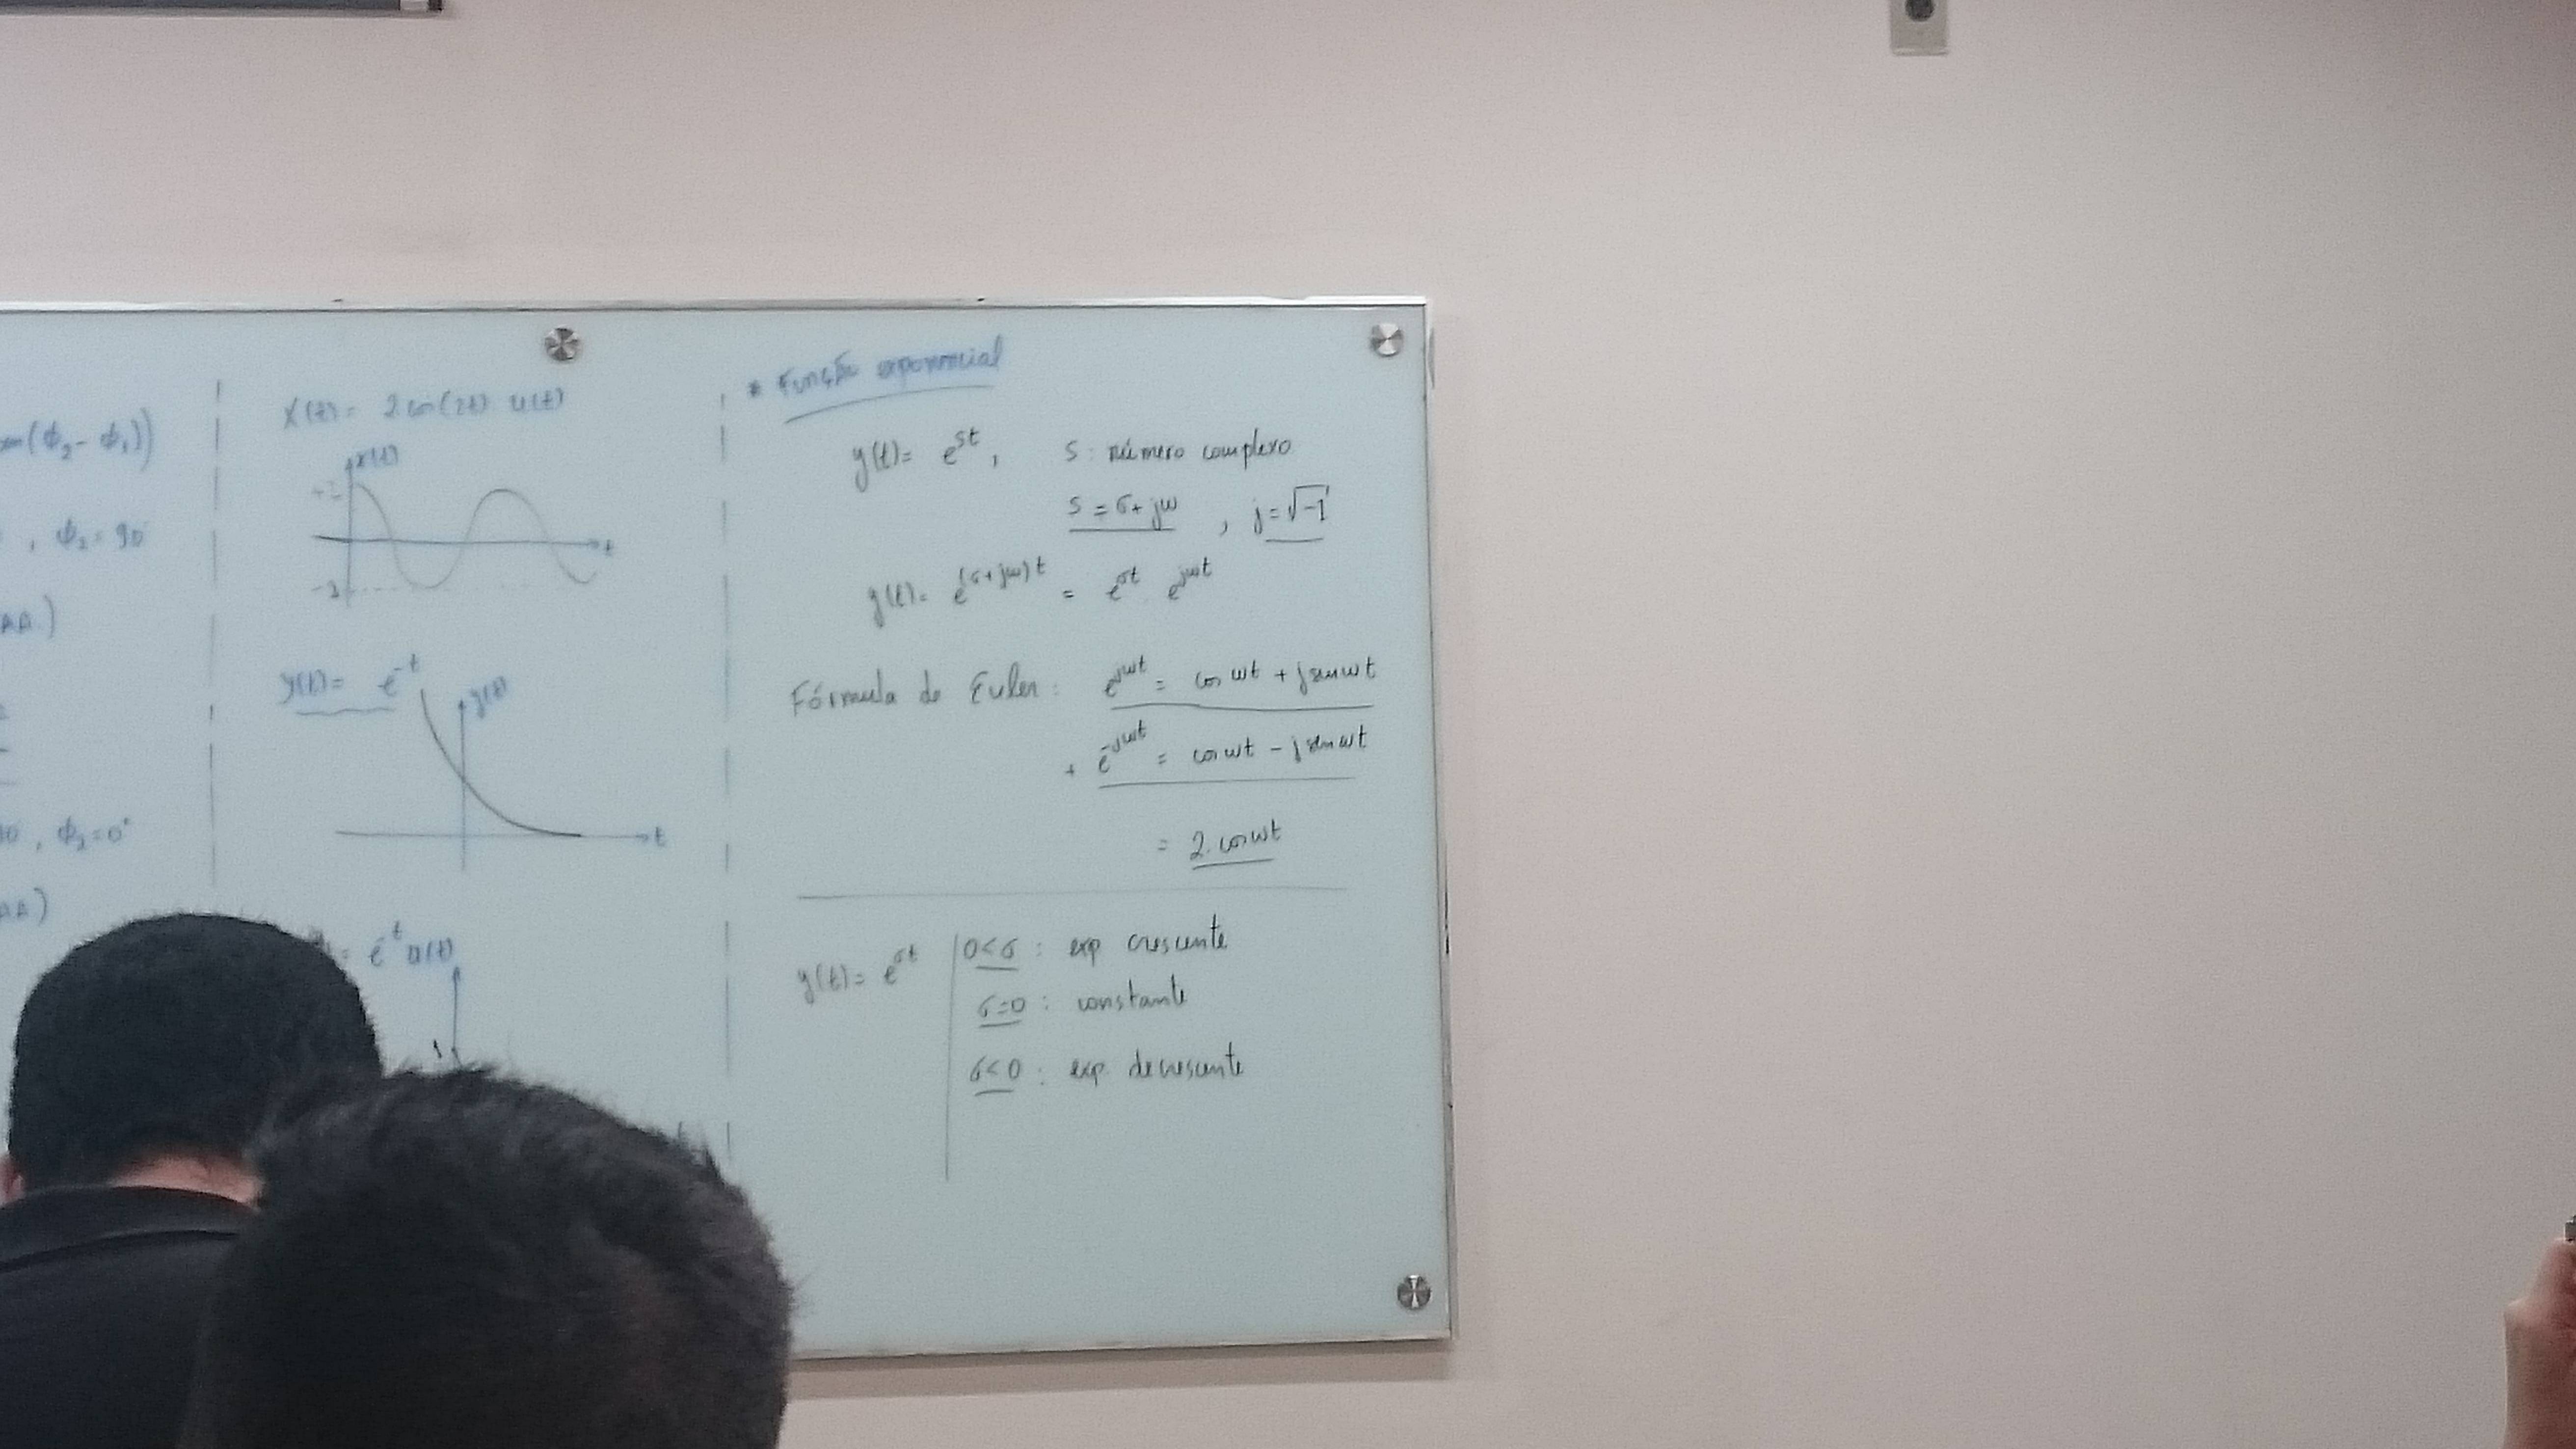 (ϕ₂ - ϕ₁))
, ϕ₂ = 90
)
, ϕ₂ = 0°
)
x(t) = 2 cos(2t) u(t)
x(t)
+2
t
-2
y(t) = e^-t
y(t)
t
= e^-t u(t)
1
t
* Função exponencial
y(t) = e^st, s: número complexo
s = σ + jω, j = √-1
y(t) = e^(σ+jω)t = e^σt e^jωt
Fórmula de Euler: e^jωt = cos ωt + j sen ωt
+ e^-jωt = cos ωt - j sen ωt
= 2.cos ωt
y(t) = e^σt
0<σ: exp crescente
σ=0: constante
σ<0: exp. decrescente